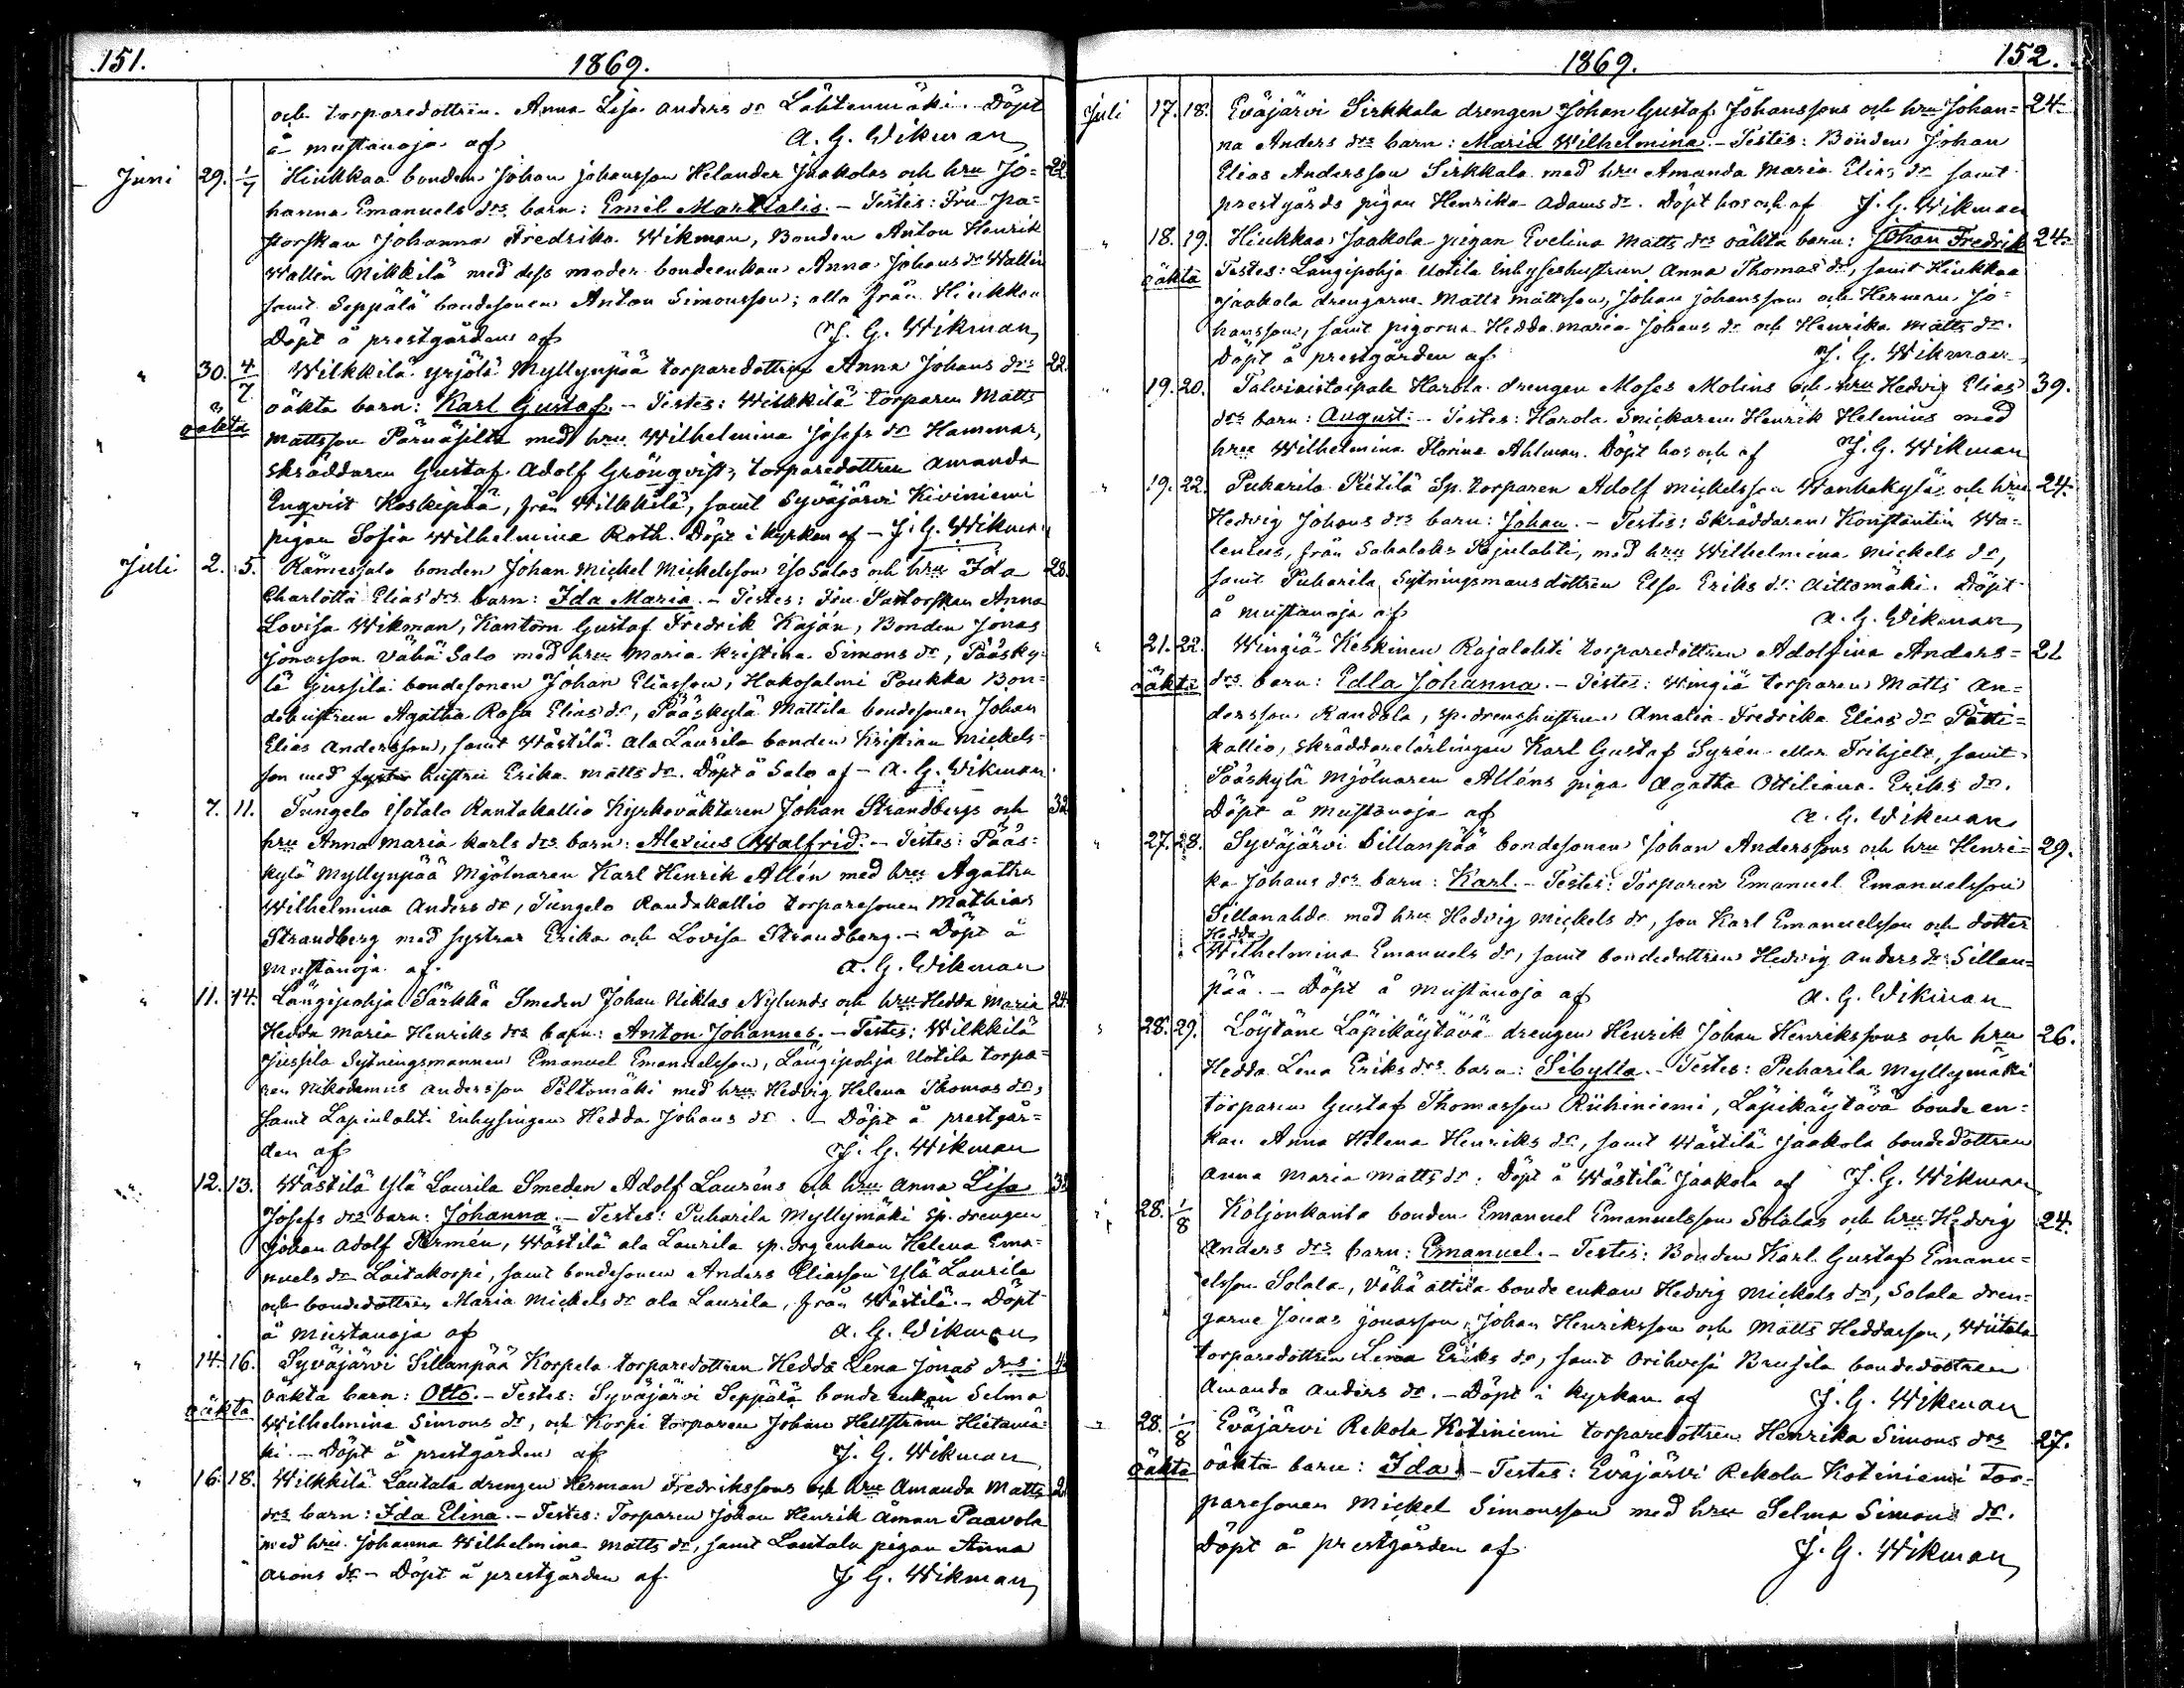 151.
1869.
och torparedottren Anna Lisa Anders dr Lähteenmäki. Döpt
å Mustanoja af A. G. Wikman
Juni 29. 1/7 Hiukkaa bonden Johan Johansson Helander Jaakolas och hru Jo= 22.
hanna Emanuels drs barn: Emil Martialis. – Testes: Fru Pa=
storskan Johanna Fredrika Wikman, Bonden Anton Henrik
Wallin Nikkilä med dess moder bondeenkan Anna Johans dr Wallin
samt Seppälä bondesonen Anton Simonsson; alla från Hiukkaa
Döpt å prestgården af J. G. Wikman
" 30. 4/7 Wilkkilä Yrjölä Myllynpää torparedottren Anna Johans drs 22.
oäkta oäkta barn: Karl Gustaf. – Testes: Wilkkilä torparen Matts
Mattsson Pärnäsilta med hru Wilhelmina Josefs dr Hammar,
skräddaren Gustaf Adolf Grönqvist, torparedottren Amanda
Enqvist Koskipää, från Wilkkilä, samt Syväjärvi Kiviniemi
pigan Sofia Wilhelmina Roth. Döpt i kyrkan af – J. G. Wikman
Juli 2. 5. Rämessalo bonden Johan Mickel Mickelsson Iso Salos och hru Ida 28.
Charlotta Elias drs barn: Ida Maria. – Testes: Fru Pastorskan Anna
Lovisa Wikman, Kantorn Gustaf Fredrik Kaján, Bonden Jonas
Jonasson Vähä Salo med hru Maria Kristina Simons dr, Pääsky=
lä Jussila bondesonen Johan Eliasson, Hakosalmi Poukka Bon=
dehustrun Agatha Rosa Elias dr, Pääskylä Mattila bondesonen Johan
Elias Andersson, samt Wästilä Ala Laurila bonden Kristian Mickels=
son med hustru Erika Matts dr. Döpt å Salo af – A. G. Wikman
" 7. 11. Tungelo Isotalo Rantakallio Kyrkoväktaren Johan Strandbergs och 32
hru Anna Maria Karls drs barn: Alexius Walfrid. – Testes: Pääs=
kylä Myllynpää Mjölnaren Karl Henrik Allén med hru Agatha
Wilhelmina Anders dr, Tungelo Randakallio torparesonen Mathias
Strandberg med systrar Erika och Lovisa Strandberg. – Döpt å
Mustanoja af A. G. Wikman
" 11. 14. Längipohja Särkkä Smeden Johan Niklas Nylunds och hru Hedda Maria 24.
Hedda Maria Henriks drs barn: Anton Johannes. – Testes: Wilkkilä
Jussila Sytningsmannen Emanuel Emanuelsson, Längipohja Uotila torpa=
ren Nikodemus Andersson Peltomäki med hru Hedvig Helena Thomas dr,
samt Lapinlahti Inhysingen Hedda Johans dr. – Döpt å prestgår=
den af J. G. Wikman
12. 13. Wästilä Ylä Laurila Smeden Adolf Lauréns och hru Anna Lisa 32
Josefs drs barn: Johanna. – Testes: Puharila Myllymäki sp. drengen
Johan Adolf Permén, Wästilä Ala Laurila sp. drg enkan Helena Ema=
nuels dr Laitakorpi, samt bondesonen Anders Eliasson Ylä Laurila
och bondedottren Maria Mickels dr Ala Laurila, från Wästilä. – Döpt
å Mustanoja af A. G. Wikman
" 14. 16. Syväjärvi Sillanpää Korpela torparedottren Hedda Lena Jonas drs
oäkta oäkta barn: Otto. – Testes: Syväjärvi Seppälä bonde enkan Selma
Wilhelmina Simons dr, och Korpi torparen Johan Hellström Hietamä=
ki. – Döpt å prestgården af J. G. Wikman
" 16. 18. Wilkkilä Lautala drengen Herman Fredrikssons och hru Amanda Matts
drs barn: Ida Elina. – Testes: Torparen Johan Henrik Åman Paavola
med hru Johanna Wilhelmina Matts dr, samt Lautala pigan Anna
Arons dr – Döpt å prestgården af J. G. Wikman
1869.
152.
Juli 17. 18. Eväjärvi Sirkkala drengen Johan Gustaf Johanssons och hru Johan= 24.
na Anders drs barn: Maria Wilhelmina. – Testes: Bonden Johan
Elias Andersson Sirkkala med hru Amanda Maria Elias dr samt
prestgårds pigan Henrika Adams dr. Döpt hos och af J. G. Wikman
" 18. 19. Hiukkaa Jaakola pigan Evelina Matts drs oäkta barn: Johan Fredrik 24.
oäkta Testes: Längipohja Uotila Inhyseshustrun Anna Thomas dr, samt Hiukkaa
Jaakola drengarne Matts Mattsson, Johan Johansson och Herman Jo=
hansson, samt pigorna Hedda Maria Johans dr och Henrika Matts dr.
Döpt å prestgården af J. G. Wikman
" 19. 20. Talviaistaipale Harola drengen Moses Molins och hru Hedvig Elias 39.
drs barn: August. – Testes: Harola Snickaren Henrik Helenius med
hru Wilhelmina Florina Ahlman. Döpt hos och af J. G. Wikman
" 19. 22. Puharila Pietilä Sp. torparen Adolf Mickelsson Wanhakyläs och hru 24.
Hedvig Johans drs barn: Johan. – Testes: Skräddaren Konstantin Wa=
lenius, från Sahalahti Kajulahti, med hru Wilhelmina Mickels dr,
samt Puharila Sytningsmans dottren Elsa Eriks dr Aittomäki. Döpt
å Mustanoja af A. G. Wikman
" 21. 22. Wingiä Keskinen Rajalahti torparedottren Adolfina Anders= 21
oäkta drs barn: Edla Johanna. – Testes: Wingiä torparen Matts An=
dersson Randala, sp. drenghustrun Amalia Fredrika Elias dr Pätti=
kallio, skräddarelärlingen Karl Gustaf Syrén eller Frihjelt, samt
Pääskylä Mjölnaren Alléns piga Agatha Ottiliana Eriks dr.
Döpt å Mustanoja af A. G. Wikman
" 27. 28. Syväjärvi Sillanpää bondesonen Johan Anderssons och hru Henri= 29.
ka Johans drs barn: Karl. – Testes: Torparen Emanuel Emanuelsson
Sillanahde med hru Hedvig Mickels dr, son Karl Emanuelsson och dotter
Hedda
Wilhelmina Emanuels dr, samt bondedottren Hedvig Anders dr Sillan=
pää. – Döpt å Mustanoja af A. G. Wikman
" 28. 29. Löytäne Läpikäytävä drengen Henrik Johan Henrikssons och hru 26.
Hedda Lena Eriks drs barn: Sibylla. – Testes: Puharila Myllymäki
torparen Gustaf Thomasson Riihiniemi, Läpikäytävä bonde en=
kan Anna Helena Henriks dr, samt Wästilä Jaakola bondedottren
Anna Maria Matts dr. Döpt å Wästilä Jaakola af J. G. Wikman
" 28. 1/8 Koljonkanta bonden Emanuel Emanuelsson Solalas och hru Hedvig 24.
Anders drs barn: Emanuel. – Testes: Bonden Karl Gustaf Emanu=
elsson Solala, Vähä Attila bonde enkan Hedvig Mickels dr, Solala dren=
garne Jonas Jonasson, Johan Henriksson och Matts Heddasson, Wiitala
torparedottren Lena Eriks dr, samt Orihvesi Brusila bondedottren
Amanda Anders dr. – Döpt i kyrkan af J. G. Wikman
" 28. 1/8 Eväjärvi Rekola Kotiniemi torparedottren Henrika Simons drs 27.
oäkta oäkta barn: Ida. – Testes: Eväjärvi Rekola Kotiniemi Tor=
paresonen Mickel Simonsson med hru Selma Simons dr.
Döpt å prestgården af J. G. Wikman